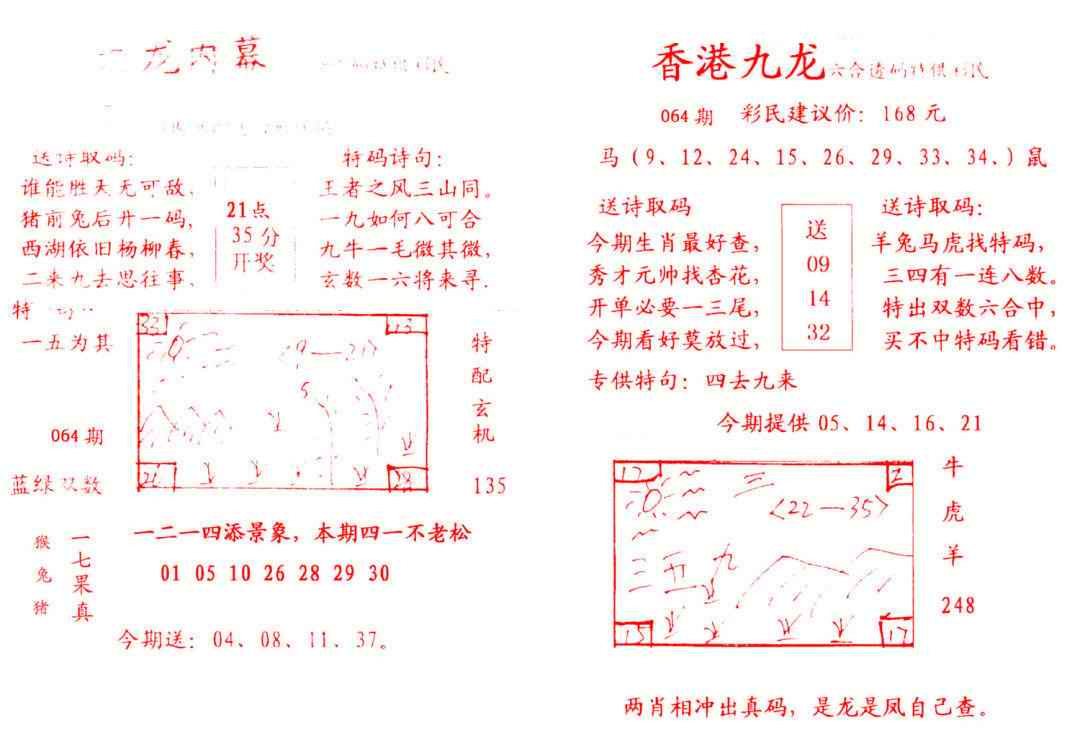 龙内幕
送诗取码：
谁能胜天无可敌、
猪前兔后开一码，
西湖依旧杨柳春，
二来九去思往事、
21点
35分
开奖
特码诗句：
王者之风三山同。
一九如何八可合
九牛一毛微其微，
玄数一六将来寻.
特
一五为其
064期
蓝绿双数
33
13
19—20
5
21
28
特配玄机
135
猴兔猪
一七果真
一二一四添景象，本期四一不老松
01 05 10 26 28 29 30
今期送：04、08、11、37。
香港九龙六合透码特供彩民
064期 彩民建议价：168元
马（9、12、24、15、26、29、33、34、）鼠
送诗取码
今期生肖最好查，
秀才元帅找杏花，
开单必要一三尾，
今期看好莫放过，
送
09
14
32
送诗取码：
羊兔马虎找特码，
三四有一连八数。
特出双数六合中，
买不中特码看错。
专供特句：四去九来
今期提供 05、14、16、21
17
2
三
<22—35>
三五九
15
17
牛
虎
羊
248
两肖相冲出真码，是龙是凤自己查。